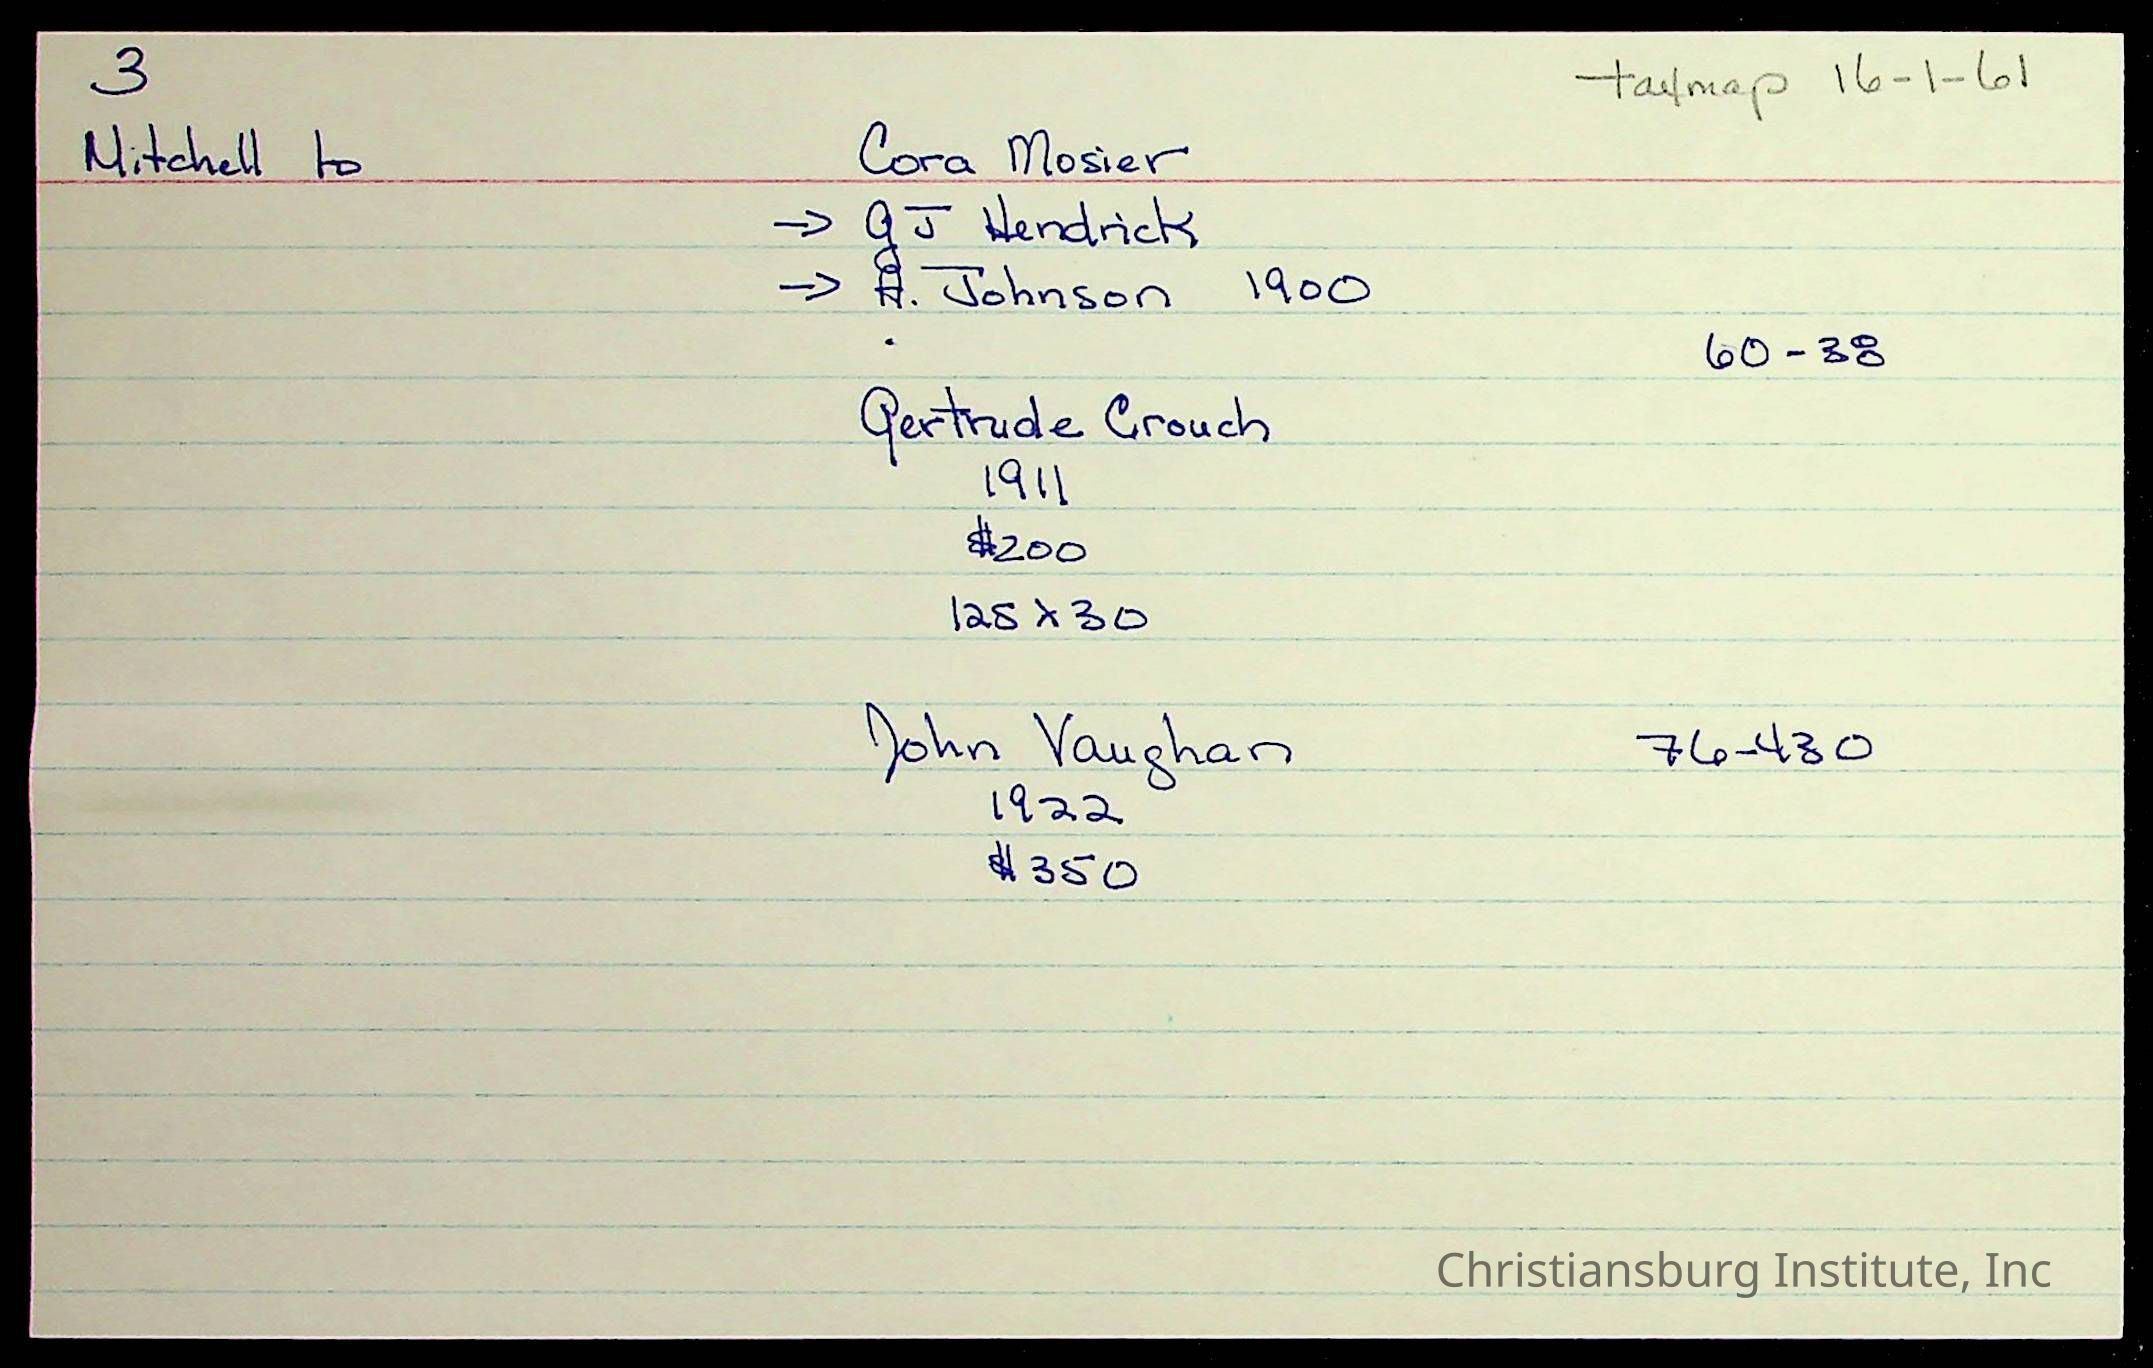 3
taxmap 16-1-61
Mitchell to Cora Mosier
→ GJ Hendricks
→ A. Johnson 1900
60-38
Gertrude Crouch
1911
$200
125 x 30
John Vaughan 76-430
1922
$350
Christiansburg Institute, Inc